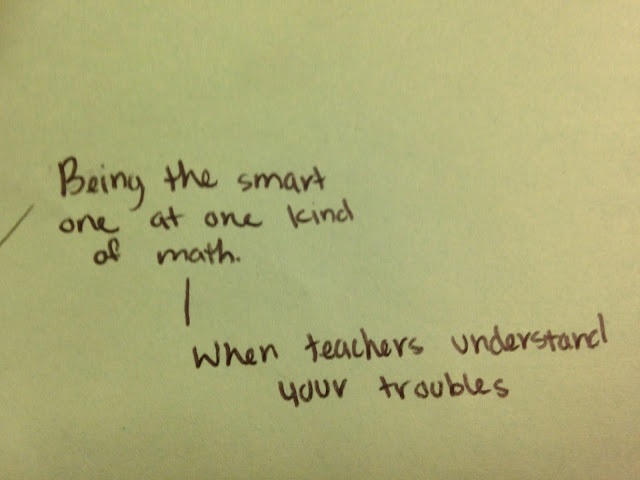 Being the smart
one at one kind
of math.
When teachers understand
your troubles